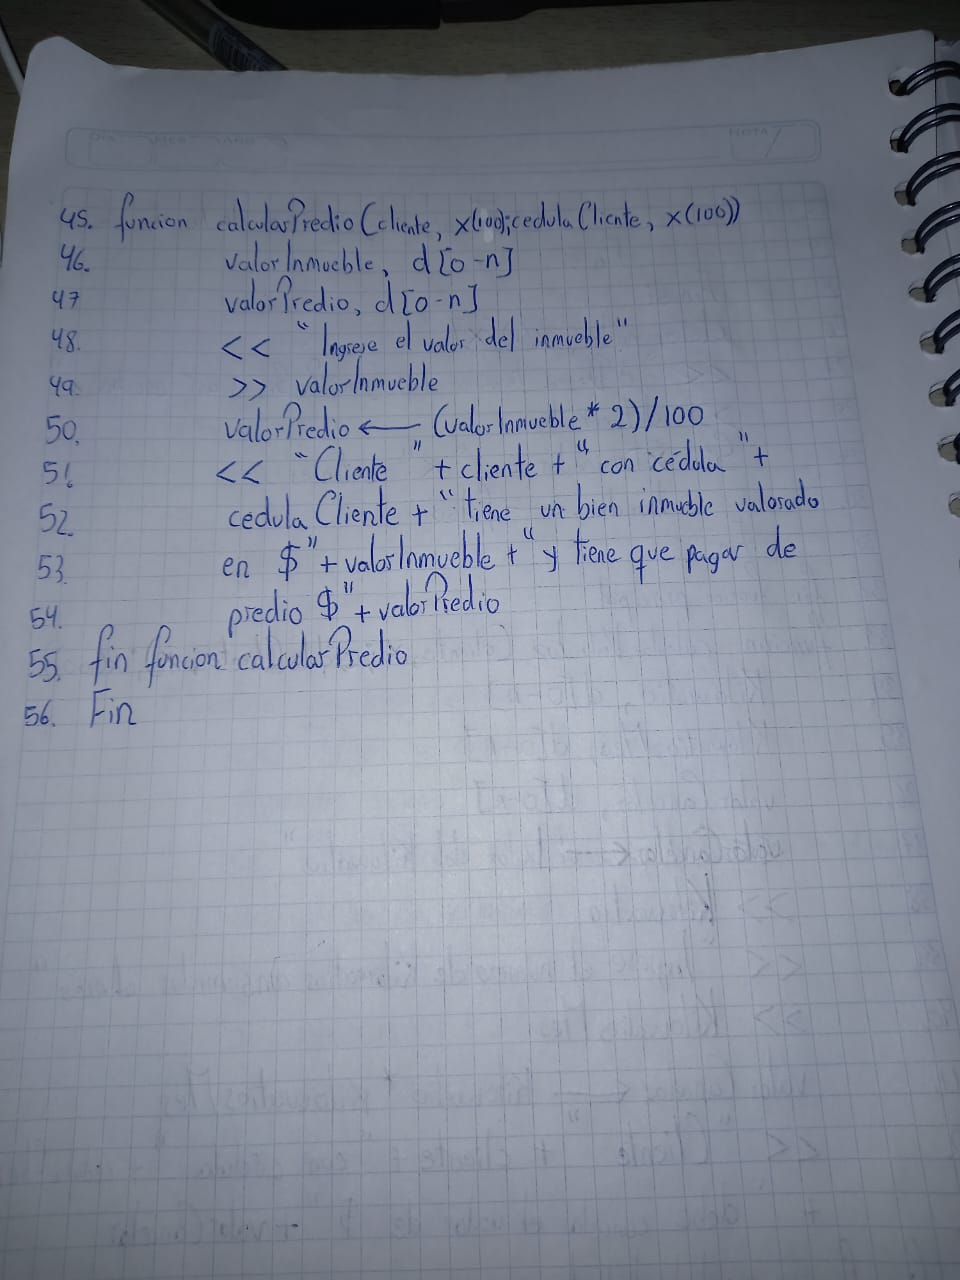 NOTA
45. funcion calcularPredio(cliente, x(100);cedulaCliente, x(100))
46. valorInmueble, d[0-n]
47 valorPredio, d[0-n]
48. << "Ingrese el valor del inmueble"
49. >> valorInmueble
50. valorPredio ← (valorInmueble * 2)/100
51. << "Cliente " + cliente + " con cédula " +
52. cedulaCliente + " tiene un bien inmueble valorado
53. en $" + valorInmueble + " y tiene que pagar de
54. predio $" + valorPredio
55. fin funcion calcularPredio
56. Fin